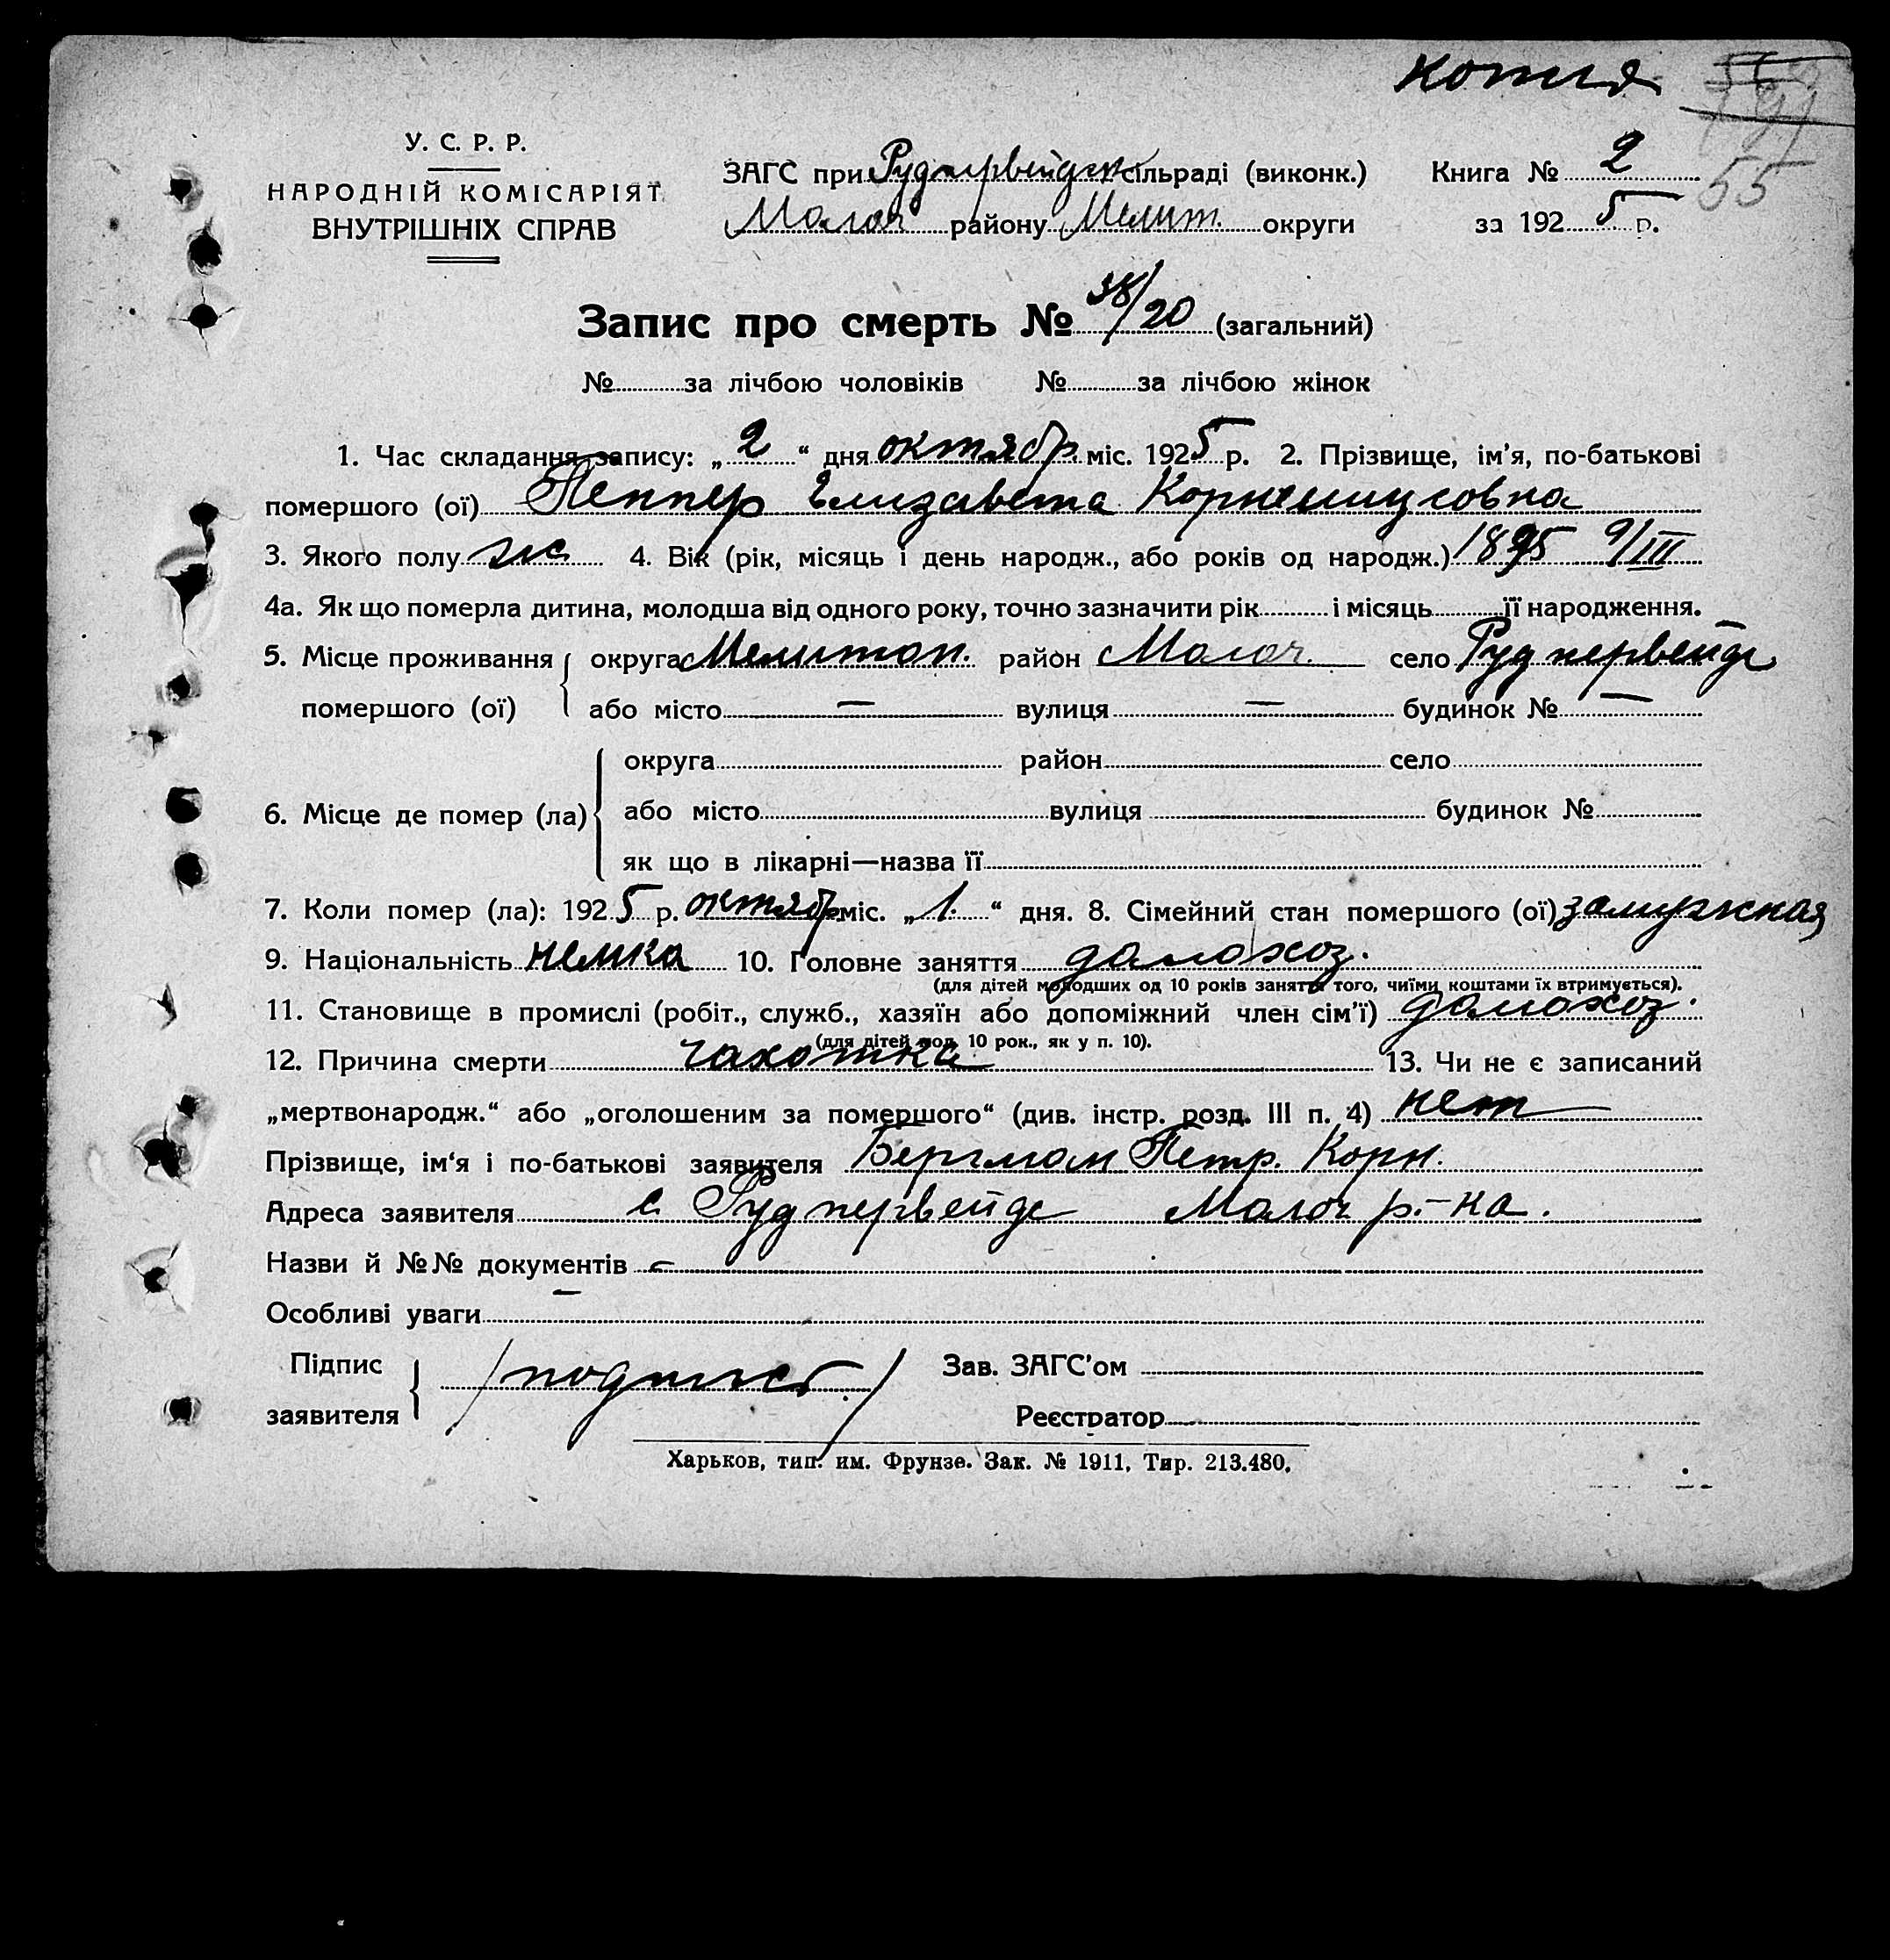 копия
У. С. Р. Р.
НАРОДНІЙ КОМІСАРІЯТ
ВНУТРІШНІХ СПРАВ
ЗАГС при Руднервейдск сільраді (виконк.)
Молоч району Мелит. округи
Книга № 2
за 1925 р.
55
Запис про смерть № 38/20 (загальний)
№ за лічбою чоловіків № за лічбою жінок
1. Час складання запису: „2“ дня октябр. міс. 1925 р. 2. Прізвище, ім’я, по-батькові
помершого (ої) Пеннер Елизавета Корнелиусовна
3. Якого полу ж 4. Вік (рік, місяць і день народж., або років од народж.) 1895 9/III
4а. Як що померла дитина, молодша від одного року, точно зазначити рік і місяць її народження.
5. Місце проживання округа Мелитоп. район Молоч. село Руднервейде
помершого (ої) або місто — вулиця — будинок № —
округа район село
6. Місце де помер (ла) або місто вулиця будинок №
як що в лікарні—назва її
7. Коли помер (ла): 1925 р. октябр міс. „1.“ дня. 8. Сімейний стан помершого (ої) замужная
9. Національність немка 10. Головне заняття домохоз.
(для дітей молодших од 10 років заняття того, чиїми коштами їх втримується).
11. Становище в промислі (робіт., служб., хазяїн або допоміжний член сім’ї) домохоз.
(для дітей мол. 10 рок., як у п. 10).
12. Причина смерти чахотка 13. Чи не є записаний
„мертвонародж.“ або „оголошеним за помершого“ (див. інстр. розд. III п. 4) нет
Прізвище, ім‘я і по-батькові заявителя Бергман Петр. Корн.
Адреса заявителя с. Руднервейде Молоч р-на.
Назви й №№ документів —
Особливі уваги —
Підпис заявителя /подпись/ Зав. ЗАГС’ом
Реєстратор
Харьков, тип. им. Фрунзе. Зак. № 1911, Тир. 213.480.